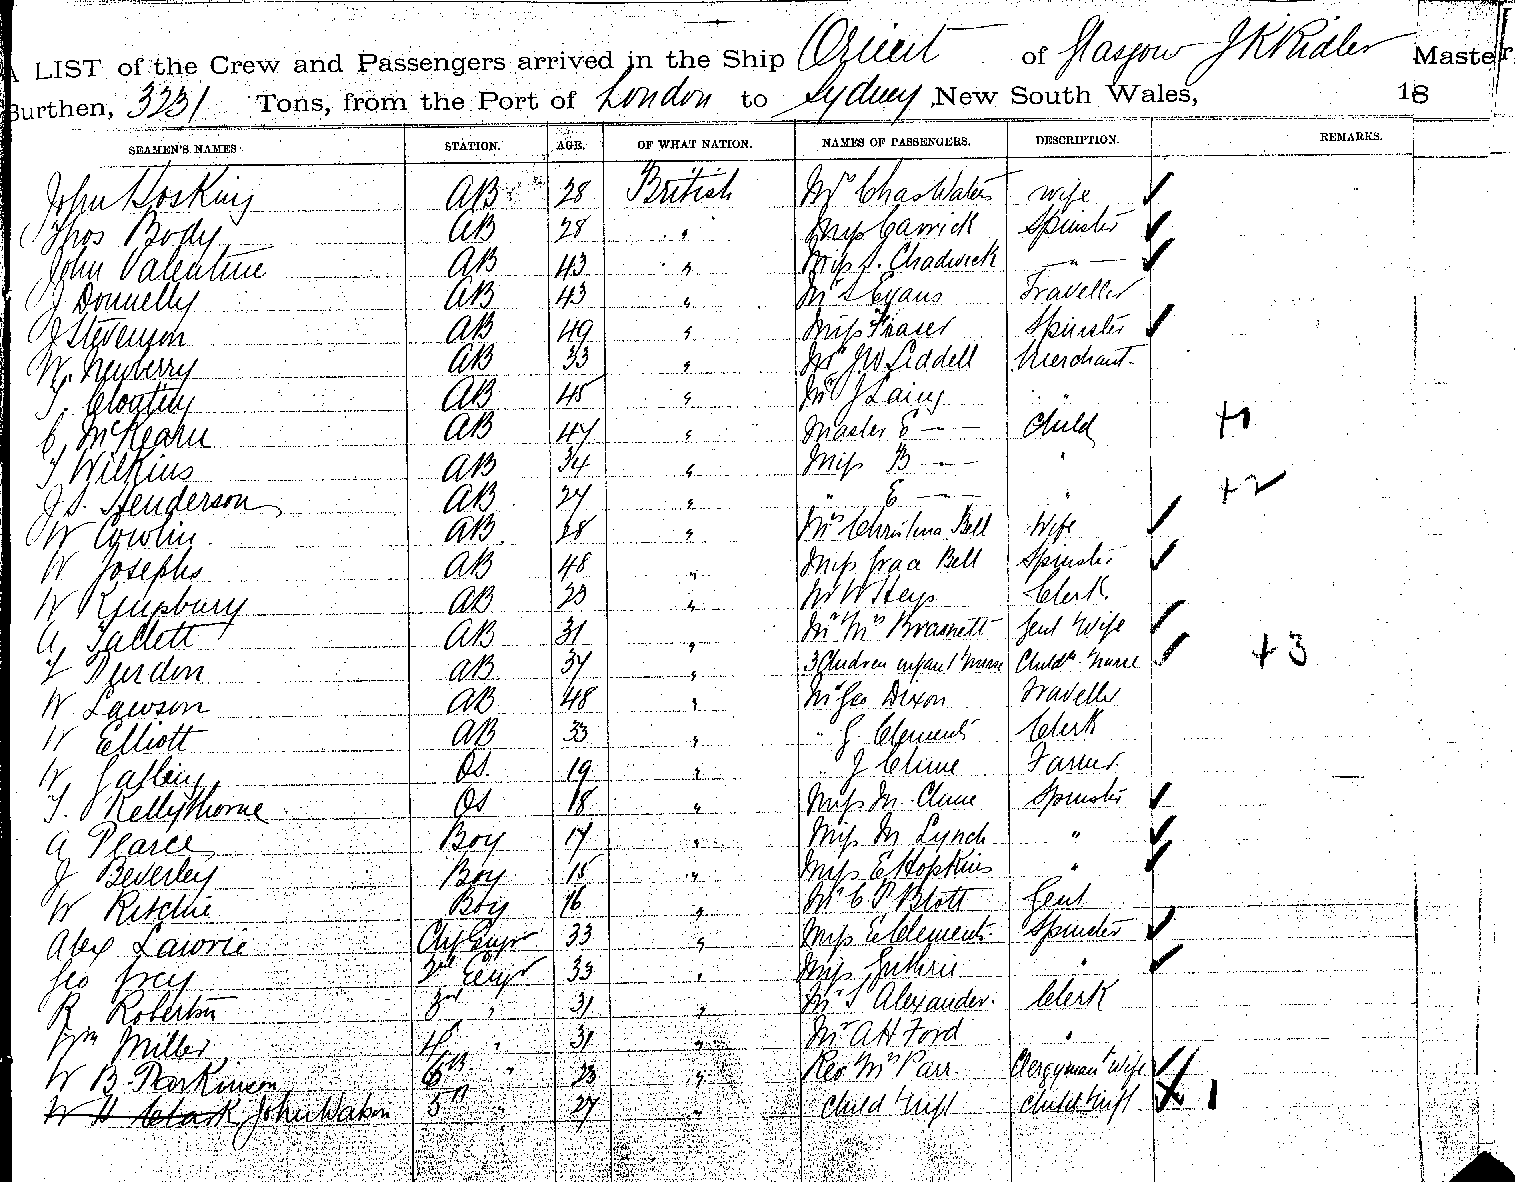 A LIST of the Crew and Passengers arrived in the Ship Orient of Glasgow J K Ridler Master
Burthen, 3231 Tons, from the Port of London to Sydney, New South Wales, 18
SEAMEN'S NAMES. STATION. AGE. OF WHAT NATION. NAMES OF PASSENGERS. DESCRIPTION. REMARKS.
John Hosking AB 28 British Mrs Chas Waters wife ✓
Thos Body AB 28 " Miss Carrick Spinster ✓
John Valentine AB 43 " Miss J. Chadwick " ✓
J Donnelly AB 43 " Mr S Evans Traveller
J Stevenson AB 49 " Miss Fraser Spinster ✓
W. Newberry AB 33 " Mr J W Liddell Merchant
T. AB 45 " Mr J Laing "
C. McKearn AB 47 " Master E — — Child + 1
T Wilkins AB 34 " Miss B — "
J S. Henderson AB 27 " " E — — " + 2
W Cowlin AB 28 " Mrs Christina Bell Wife ✓
W Josephs AB 48 " Miss Grace Bell Spinster ✓
W Kingsbury AB 23 " Mr W Heys Clerk
A, Tallett AB 31 " Mr Mrs Brasnett Gent Wife ✓
T Durdon AB 37 " 3 Children infant Nurse Childn Nurse ✓ + 3
W Lawson AB 48 " Mr Geo Dixon Traveller
W Elliott AB 33 " " G Clements Clerk
W. OS. 19 " " J Clune Farmer
T. Kellythorne OS 18 " Miss M Clune Spinster ✓
A Pearce Boy 17 " Miss M Lynch " ✓
J Beverley Boy 15 " Miss E Hopkins " ✓
W Ritchie Boy 16 " Mr C P Blott Gent
Alex Lawrie Chf Engr 33 " Miss E Clements Spinster ✓
Geo Grey 2nd Engr 33 " Miss Guthrie " ✓
R Roberton 3rd " 31 " Mr S Alexander. Clerk
Wm Miller 4th " 31 " Mr A H Ford "
W B Parkinson 6th " 23 " Rev Mrs Parr. Clergyman Wife ✓✓
W H Clark John Watson 5th " 27 " Child Inft Child Inft 1